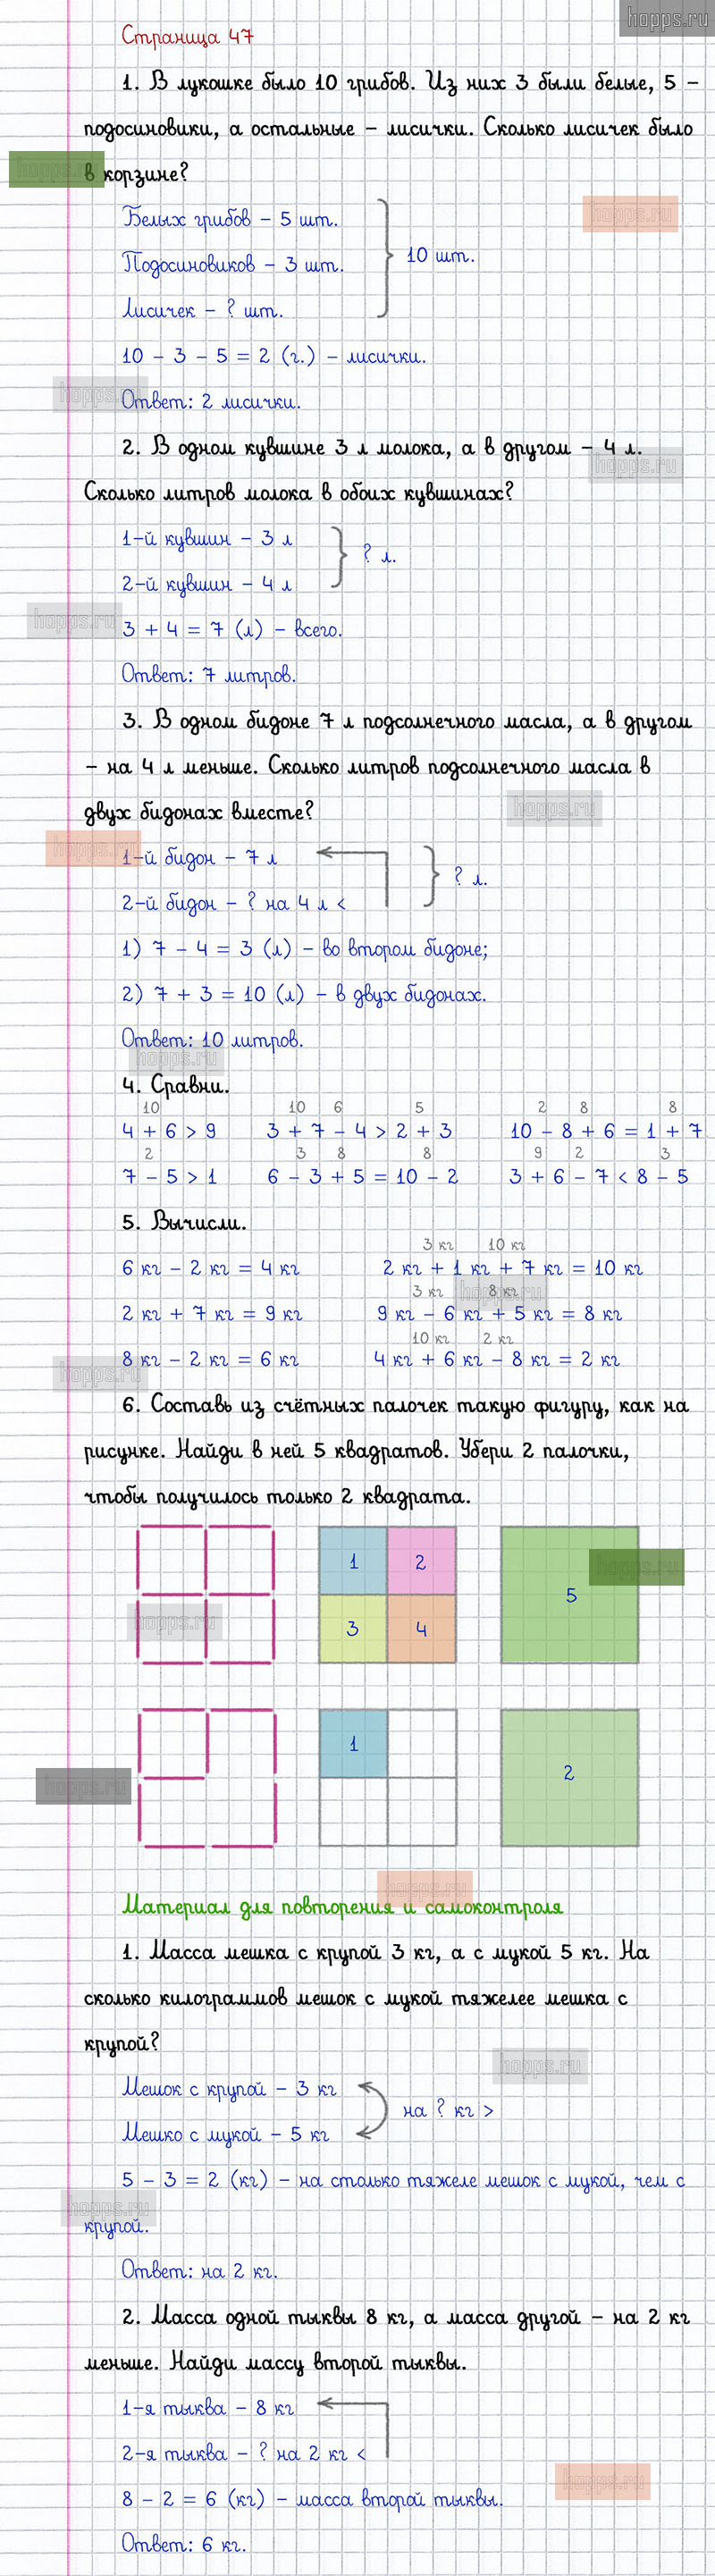 hopps.ru
Страница 47
1. В лукошке было 10 грибов. Из них 3 были белые, 5 –
подосиновики, а остальные – лисички. Сколько лисичек было
hopps.ru
в корзине?
hopps.ru
Белых грибов – 5 шт.
Подосиновиков – 3 шт.
10 шт.
Лисичек – ? шт.
10 – 3 – 5 = 2 (г.) – лисички.
hopps.ru
Ответ: 2 лисички.
2. В одном кувшине 3 л молока, а в другом – 4 л.
hopps.ru
Сколько литров молока в обоих кувшинах?
1-й кувшин – 3 л
? л.
2-й кувшин – 4 л
hopps.ru
3 + 4 = 7 (л) – всего.
Ответ: 7 литров.
3. В одном бидоне 7 л подсолнечного масла, а в другом
– на 4 л меньше. Сколько литров подсолнечного масла в
двух бидонах вместе?
hopps.ru
hopps.ru
1-й бидон – 7 л
? л.
2-й бидон – ? на 4 л <
1) 7 – 4 = 3 (л) – во втором бидоне;
2) 7 + 3 = 10 (л) – в двух бидонах.
Ответ: 10 литров.
hopps.ru
4. Сравни.
10 10 6 5 2 8 8
4 + 6 > 9 3 + 7 – 4 > 2 + 3 10 – 8 + 6 = 1 + 7
2 3 8 8 9 2 3
7 – 5 > 1 6 – 3 + 5 = 10 – 2 3 + 6 – 7 < 8 – 5
5. Вычисли.
3 кг 10 кг
6 кг – 2 кг = 4 кг 2 кг + 1 кг + 7 кг = 10 кг
hopps.ru
3 кг 8 кг
2 кг + 7 кг = 9 кг 9 кг – 6 кг + 5 кг = 8 кг
10 кг 2 кг
8 кг – 2 кг = 6 кг 4 кг + 6 кг – 8 кг = 2 кг
hopps.ru
6. Составь из счётных палочек такую фигуру, как на
рисунке. Найди в ней 5 квадратов. Убери 2 палочки,
чтобы получилось только 2 квадрата.
1 2
hopps.ru
5
hopps.ru
3 4
1
2
hopps.ru
hopps.ru
Материал для повторения и самоконтроля
1. Масса мешка с крупой 3 кг, а с мукой 5 кг. На
сколько килограммов мешок с мукой тяжелее мешка с
крупой?
hopps.ru
Мешок с крупой – 3 кг
на ? кг >
Мешко с мукой – 5 кг
5 – 3 = 2 (кг) – на столько тяжеле мешок с мукой, чем с
hopps.ru
крупой.
Ответ: на 2 кг.
2. Масса одной тыквы 8 кг, а масса другой – на 2 кг
меньше. Найди массу второй тыквы.
1-я тыква – 8 кг
2-я тыква – ? на 2 кг <
hopps.ru
8 – 2 = 6 (кг) – масса второй тыквы.
Ответ: 6 кг.